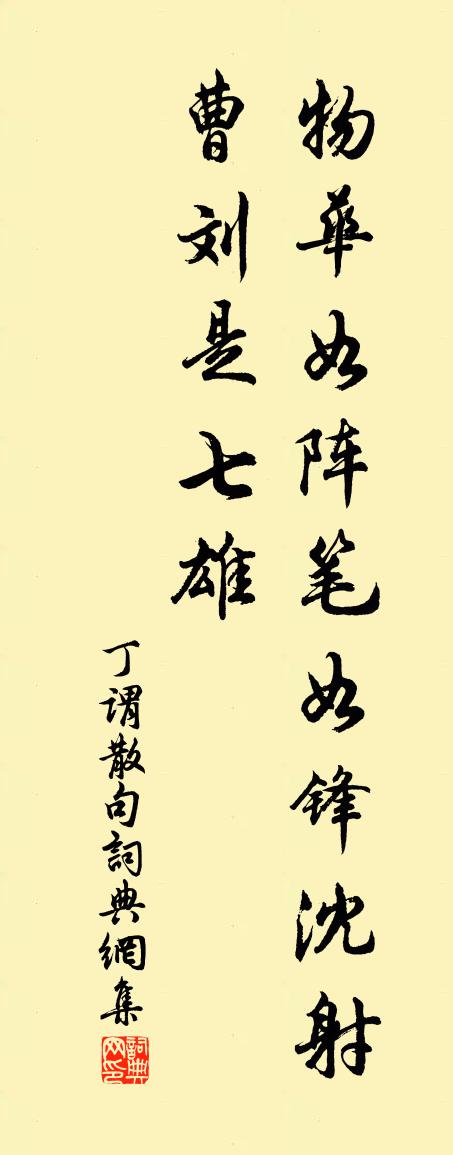 物华如阵笔如锋沈射
曹刘是七雄
丁谓散句詞典網集
詞典网印